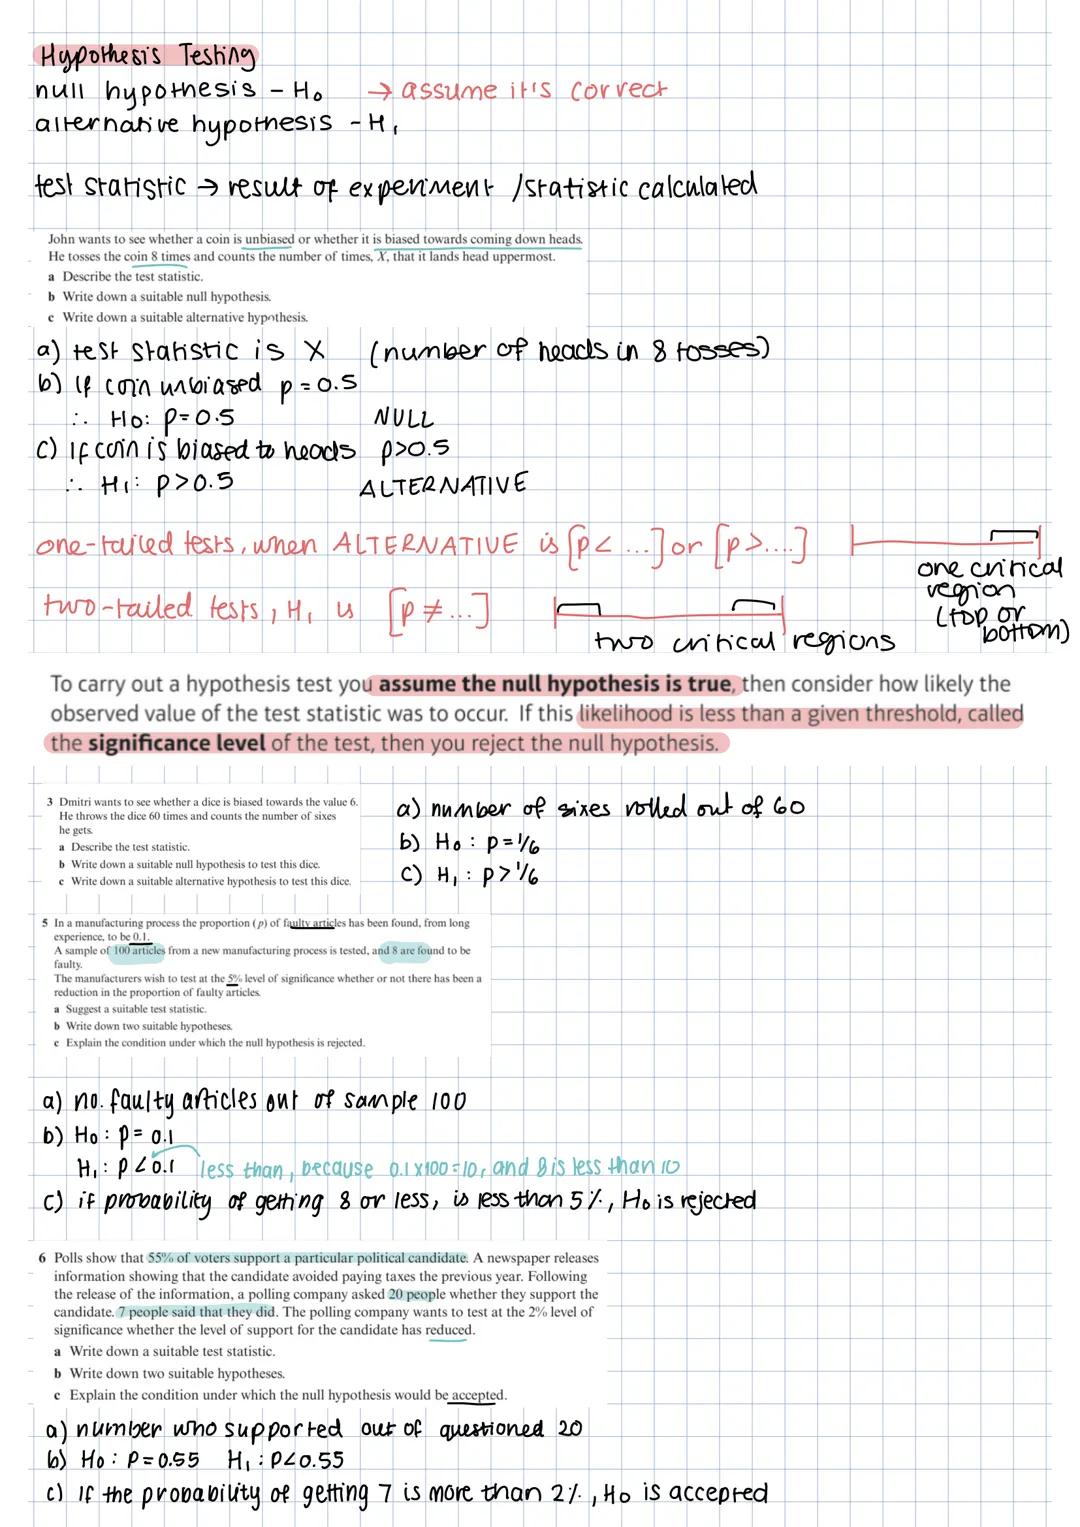 Hypothesis Testing
null hypothesis - H₀ → assume it's correct
alternative hypothesis - H₁
test statistic → result of experiment / statistic calculated
John wants to see whether a coin is unbiased or whether it is biased towards coming down heads.
He tosses the coin 8 times and counts the number of times, X, that it lands head uppermost.
a Describe the test statistic.
b Write down a suitable null hypothesis.
c Write down a suitable alternative hypothesis.
a) test statistic is X (number of heads in 8 tosses)
b) If coin unbiased p = 0.5
∴ H₀: p = 0.5 NULL
c) If coin is biased to heads p>0.5
∴ H₁: p>0.5 ALTERNATIVE
one-tailed tests, when ALTERNATIVE is [p< ...] or [p>....]
one critical
region
(top or
bottom)
two-tailed tests, H₁ is [p ≠ ...]
two critical regions
To carry out a hypothesis test you assume the null hypothesis is true, then consider how likely the
observed value of the test statistic was to occur. If this likelihood is less than a given threshold, called
the significance level of the test, then you reject the null hypothesis.
3 Dmitri wants to see whether a dice is biased towards the value 6.
He throws the dice 60 times and counts the number of sixes
he gets.
a Describe the test statistic.
b Write down a suitable null hypothesis to test this dice.
c Write down a suitable alternative hypothesis to test this dice.
a) number of sixes rolled out of 60
b) H₀ : p = 1/6
c) H₁ : p > 1/6
5 In a manufacturing process the proportion (p) of faulty articles has been found, from long
experience, to be 0.1.
A sample of 100 articles from a new manufacturing process is tested, and 8 are found to be
faulty.
The manufacturers wish to test at the 5% level of significance whether or not there has been a
reduction in the proportion of faulty articles.
a Suggest a suitable test statistic.
b Write down two suitable hypotheses.
c Explain the condition under which the null hypothesis is rejected.
a) no. faulty articles out of sample 100
b) H₀ : p = 0.1
H₁ : p < 0.1 less than, because 0.1 x 100 = 10, and 8 is less than 10
c) if probability of getting 8 or less, is less than 5%, H₀ is rejected
6 Polls show that 55% of voters support a particular political candidate. A newspaper releases
information showing that the candidate avoided paying taxes the previous year. Following
the release of the information, a polling company asked 20 people whether they support the
candidate. 7 people said that they did. The polling company wants to test at the 2% level of
significance whether the level of support for the candidate has reduced.
a Write down a suitable test statistic.
b Write down two suitable hypotheses.
c Explain the condition under which the null hypothesis would be accepted.
a) number who supported out of questioned 20
b) H₀ : P = 0.55 H₁ : P<0.55
c) If the probability of getting 7 is more than 2%, H₀ is accepted